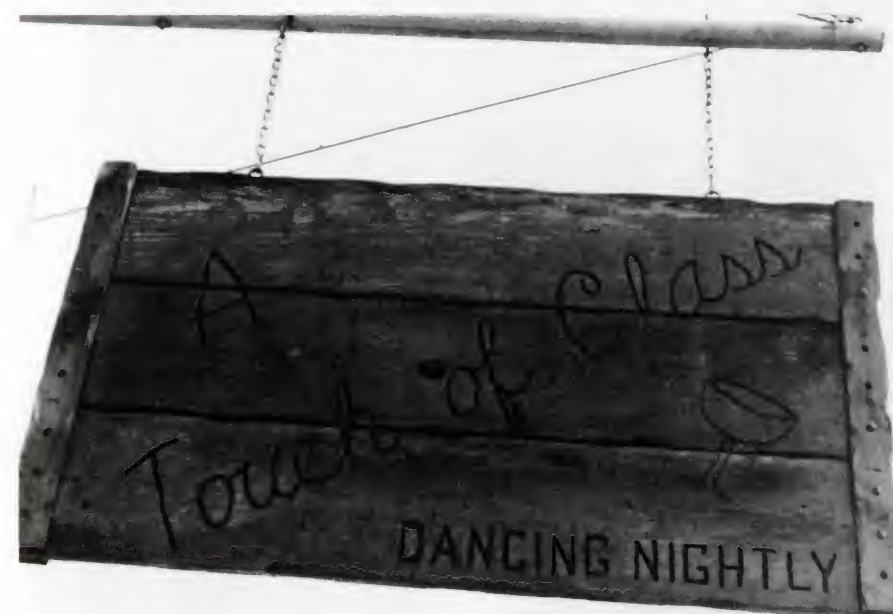 A
Touch of Class
DANCING NIGHTLY